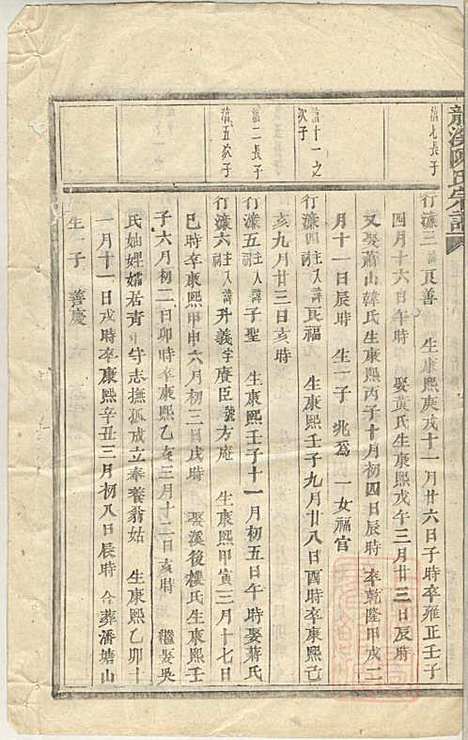 龍溪陳氏宗譜
濂七長子
行濂三 諱良善 生康熙庚戌十一月廿六日子時卒雍正壬子
四月十六日午時 娶黃氏生康熙戊午三月廿三日辰時
又娶蕭山韓氏生康熙丙子十月初四日辰時 卒乾隆甲戌二
月十一日辰時 生一子 兆為 一女福官
濂十一之次子
行濂四 主入諱良福 生康熙壬子九月廿八日酉時卒康熙己
亥九月廿三日亥時
濂二長子
行濂五 主入諱子聖 生康熙壬子十一月初五日午時娶蔣氏
濂五次子
行濂六 主入諱升義字賡臣號方庵 生康熙甲寅三月十七日
巳時卒康熙甲申六月初三日戌時 娶溪後樓氏生康熙壬
子六月初二日卯時卒康熙乙亥三月十二日亥時 繼娶吳
氏妯娌孀居青年守志撫孤成立奉養翁姑 生康熙乙卯十
一月十一日戌時卒康熙辛丑三月初八日辰時 合葬潘塘山
生一子 善慶